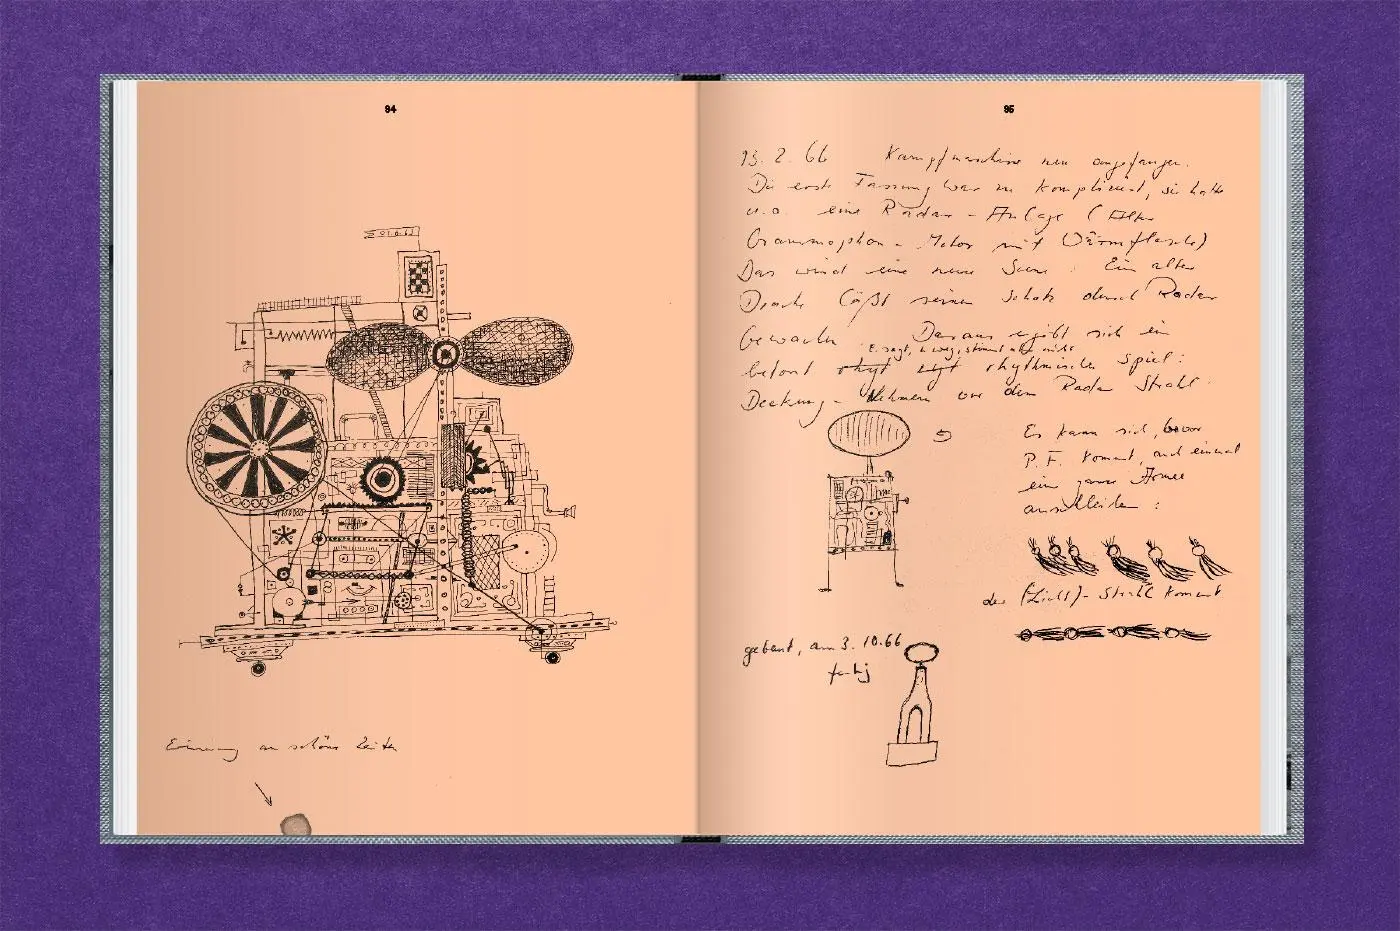 94
Erinnerung an schöne Zeiten
95
13. 2. 66 Kampfmaschine neu angefangen.
Die erste Fassung war zu kompliziert, sie hatte
u.a. eine Radar-Anlage (Alter
Grammophon-Motor mit Wärmflasche)
Das wird eine neue Szene: Ein alter
Drache läßt seinen Schatz durch Radar
bewachen Daraus ergibt sich ein
E. sagt, stimmt aber nicht
betont rhythmisches Spiel:
Deckung-Nehmen vor dem Radar Strahl.
Es kann sich, bevor
P. F. kommt, auch einmal
eine ganze Armee
anschleichen:
der (Licht)-Strahl kommt
gebaut, am 3. 10. 66
fertig